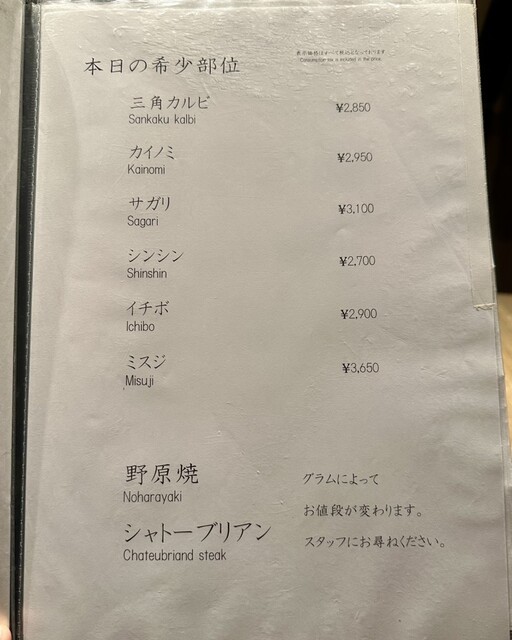 本日の希少部位
表示価格はすべて税込となっております
Consumption tax is included in the price.
三角カルビ ¥2,850
Sankaku kalbi
カイノミ ¥2,950
Kainomi
サガリ ¥3,100
Sagari
シンシン ¥2,700
Shinshin
イチボ ¥2,900
Ichibo
ミスジ ¥3,650
Misuji
野原焼
Noharayaki
シャトーブリアン
Chateubriand steak
グラムによって
お値段が変わります。
スタッフにお尋ねください。